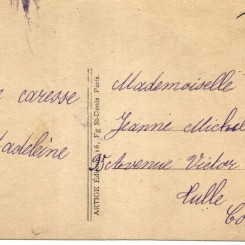 caresse
Madeleine
ARTIGE Éditeur, 16, Fg St-Denis Paris.
Mademoiselle
Jeanne Michel
25 Avenue Victor
Tulle
Co